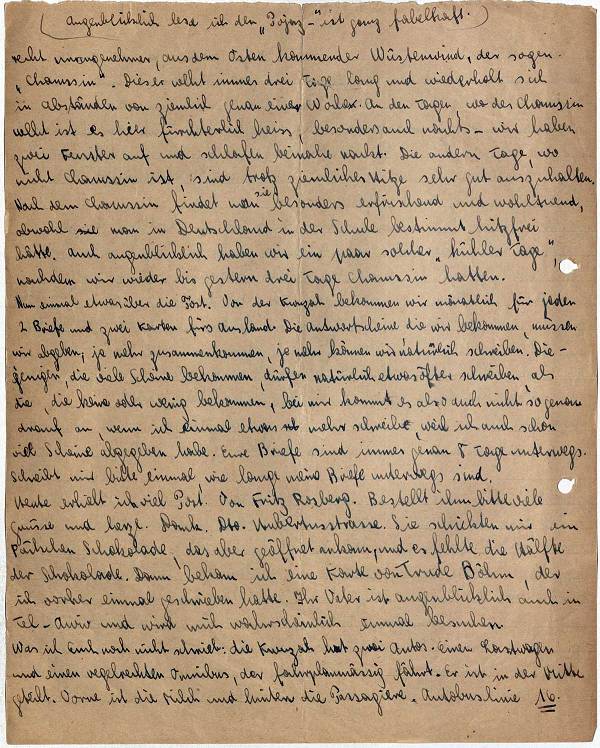 (Augenblicklich lese ich den "Pojaz" - ist ganz fabelhaft.)
recht unangenehmer, aus dem Osten kommender Wüstenwind, der sogen.
"Chamssin". Dieser weht immer drei Tage lang und wiederholt sich
in Abständen von ziemlich genau einer Woche. An den Tagen wo der Chamssin
weht ist es hier fürchterlich heiss, besonders auch nachts - wir haben
zwei Fenster auf und schlafen beinahe nackt. Die andern Tage, wo
nicht Chamssin ist, sind trotz ziemlicher Hitze sehr gut auszuhalten.
Nach dem Chamssin findet man sie besonders erfrischend und wohltuend,
obwohl man in Deutschland in der Schule bestimmt hitzfrei
hätte. Auch augenblicklich haben wir ein paar solcher "kühler Tage",
nachdem wir wieder bis gestern drei Tage Chamssin hatten.
Nun einmal etwas über die Post. Von der Kwuzah bekommen wir monatlich für jeden
2 Briefe und zwei Karten fürs Ausland. Die Antwortscheine die wir bekommen, müssen
wir abgeben; je mehr zusammenkommen, je mehr können wir natürlich schreiben. Die-
jenigen, die viele Scheine bekommen, dürfen natürlich etwas öfter schreiben, als
die, die keine oder wenig bekommen, bei mir kommt es also auch nicht so genau
drauf an, wenn ich einmal etwas mehr schreibe, weil ich auch schon
viel Scheine abgegeben habe. Eure Briefe sind immer genau 8 Tage unterwegs.
Schreibt mir bitte einmal wie lange meine Briefe unterwegs sind.
Heute erhielt ich viel Post. Von Fritz Rosberg. Bestellt ihm bitte viele
Grüsse und herzl. Dank. Dto. Hubertusstrasse. Sie schickten mir ein
Päckchen Schokolade, das aber geöffnet ankam, und es fehlte die Hälfte
der Schokolade. Dann bekam ich eine Karte von Trude Böhm, der
ich vorher einmal geschrieben hatte. Ihr Vater ist augenblicklich auch in
Tel-Aviv und wird mich wahrscheinlich einmal besuchen.
Was ich Euch noch nicht schrieb: die Kwuzah hat zwei Autos. Einen Lastwagen
und einen regelrechten Omnibus, der fahrplanmässig fährt. Er ist in der Mitte
geteilt. Vorne ist die Milch und hinten die Passagiere. Autobuslinie 16.